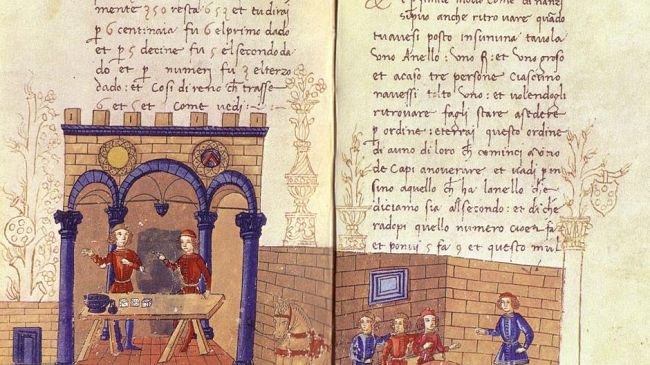 mente 250 resta 653 et tu dirai
p 6 centinaia fu el primo dado
et p 5 decine fu 5 el secondo da
do et p numeri fu 3 el terzo
dado: et Cosi di reno ch trasse
6 et 5 et Come vedi:
sipuo anche ritrovare quado
tu avesi posto in su n una tavola
uno Anello: uno R: et uno groso
et acaso tre persone Ciascuno
navessi tolto uno: et volendogli
ritrovare fagli stare a sedere
p ordine: et terrai questo ordine
di a uno di loro ch cominci
de Capi a noverare et vadi p in
sino aquello ch ha lanello che
diciamo sia al secondo: et di che
radopi quello numero
et ponvi 5 fa 9 et questo mul